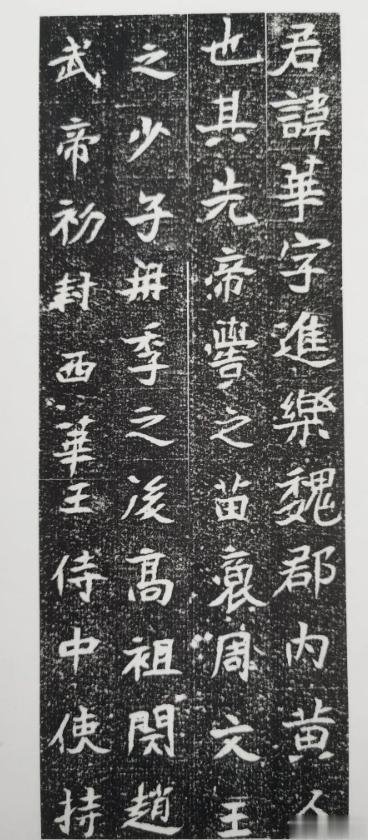 君諱華字進樂魏郡内黄人
也其先帝嚳之苗裔周文王
之少子冉季之後高祖閔趙
武帝初封西華王侍中使持